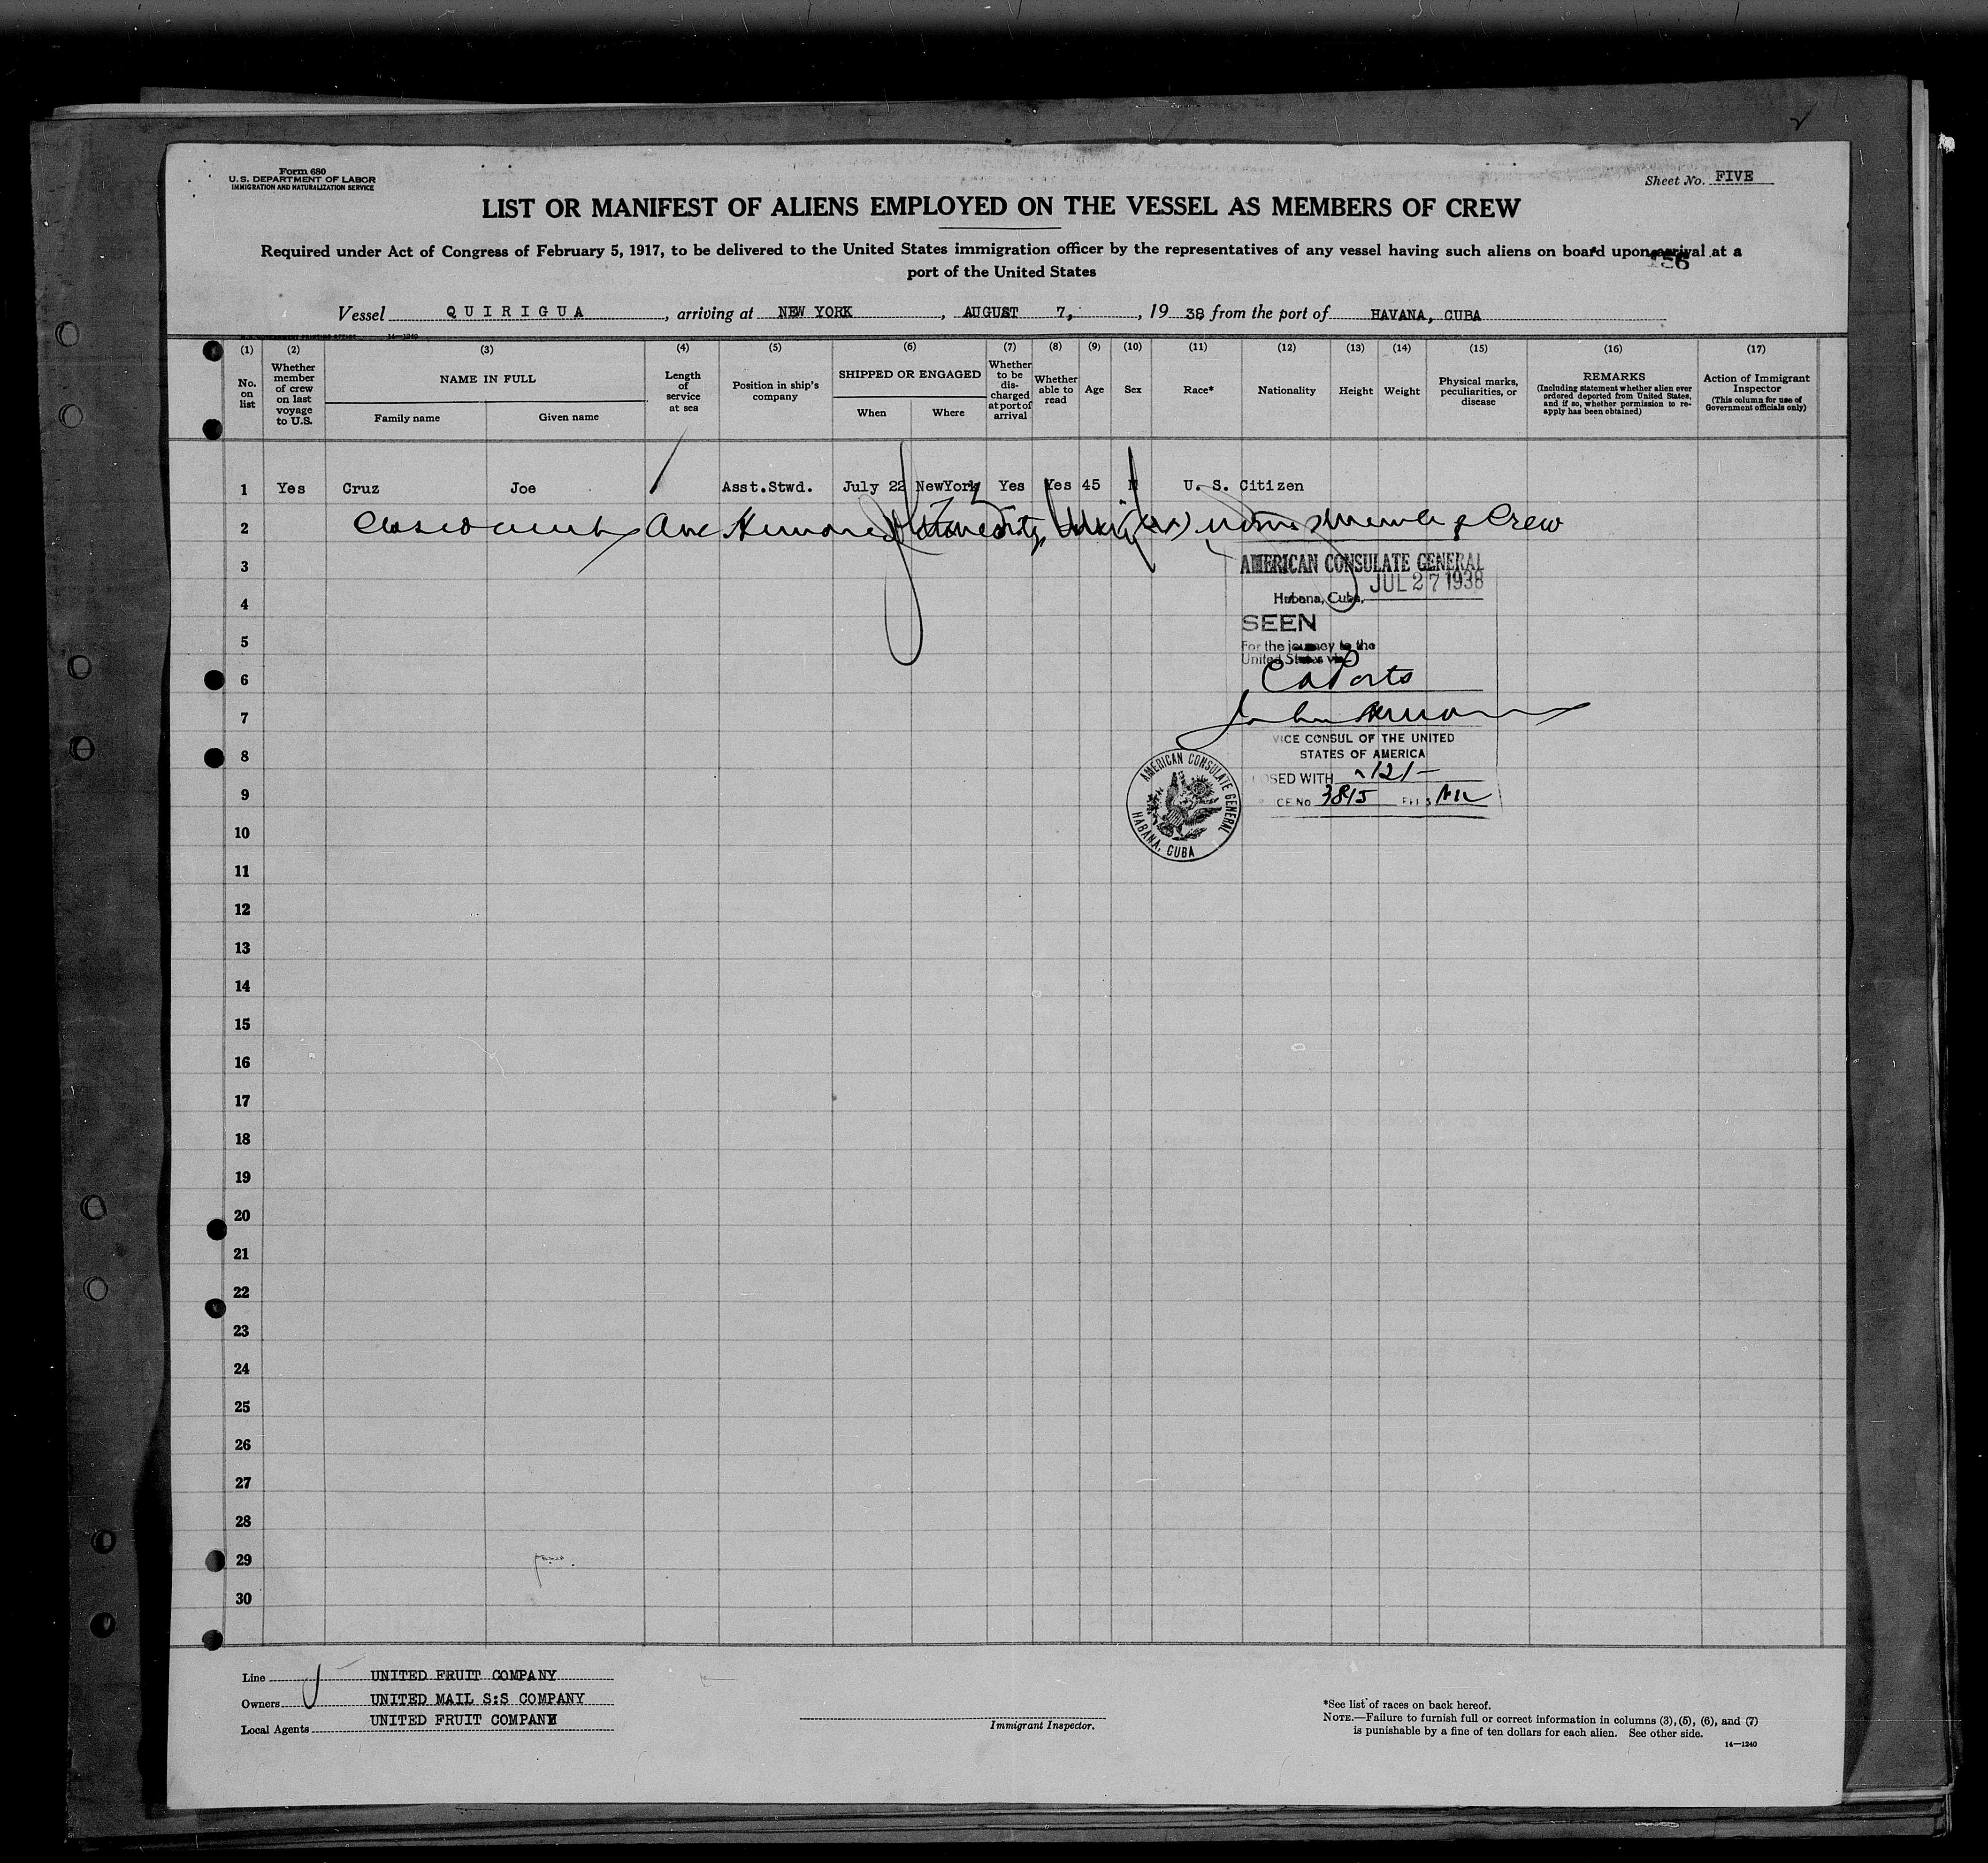 Form 680
U.S. DEPARTMENT OF LABOR
IMMIGRATION AND NATURALIZATION SERVICE
Sheet No. FIVE
LIST OR MANIFEST OF ALIENS EMPLOYED ON THE VESSEL AS MEMBERS OF CREW
Required under Act of Congress of February 5, 1917, to be delivered to the United States immigration officer by the representatives of any vessel having such aliens on board upon arrival at a
port of the United States
Vessel QUIRIGUA, arriving at NEW YORK, AUGUST 7, 1938, from the port of HAVANA, CUBA
(1) (2) (3) (4) (5) (6) (7) (8) (9) (10) (11) (12) (13) (14) (15) (16) (17)
No. on list
Whether member of crew on last voyage to U.S.
NAME IN FULL
Family name Given name
Length of service at sea
Position in ship's company
SHIPPED OR ENGAGED
When Where
Whether to be discharged at port of arrival
Whether able to read
Age
Sex
Race*
Nationality
Height
Weight
Physical marks, peculiarities, or disease
REMARKS
(Including statement whether alien ever ordered deported from United States, and if so, whether permission to re-apply has been obtained)
Action of Immigrant Inspector
(This column for use of Government officials only)
1 Yes Cruz Joe Asst.Stwd. July 22 NewYork Yes Yes 45 M U. S. Citizen
2 Crew
3
4
5
6
7
8
9
10
11
12
13
14
15
16
17
18
19
20
21
22
23
24
25
26
27
28
29
30
AMERICAN CONSULATE GENERAL
JUL 27 1938
Habana, Cuba,
SEEN
For the journey to the
United States via
John
VICE CONSUL OF THE UNITED
STATES OF AMERICA
OSED WITH 121-
CE No 3845
AMERICAN CONSULATE GENERAL
HABANA, CUBA
Line UNITED FRUIT COMPANY
Owners UNITED MAIL S:S COMPANY
Local Agents UNITED FRUIT COMPANY
Immigrant Inspector.
*See list of races on back hereof.
NOTE.—Failure to furnish full or correct information in columns (3), (5), (6), and (7)
is punishable by a fine of ten dollars for each alien. See other side.
14—1240